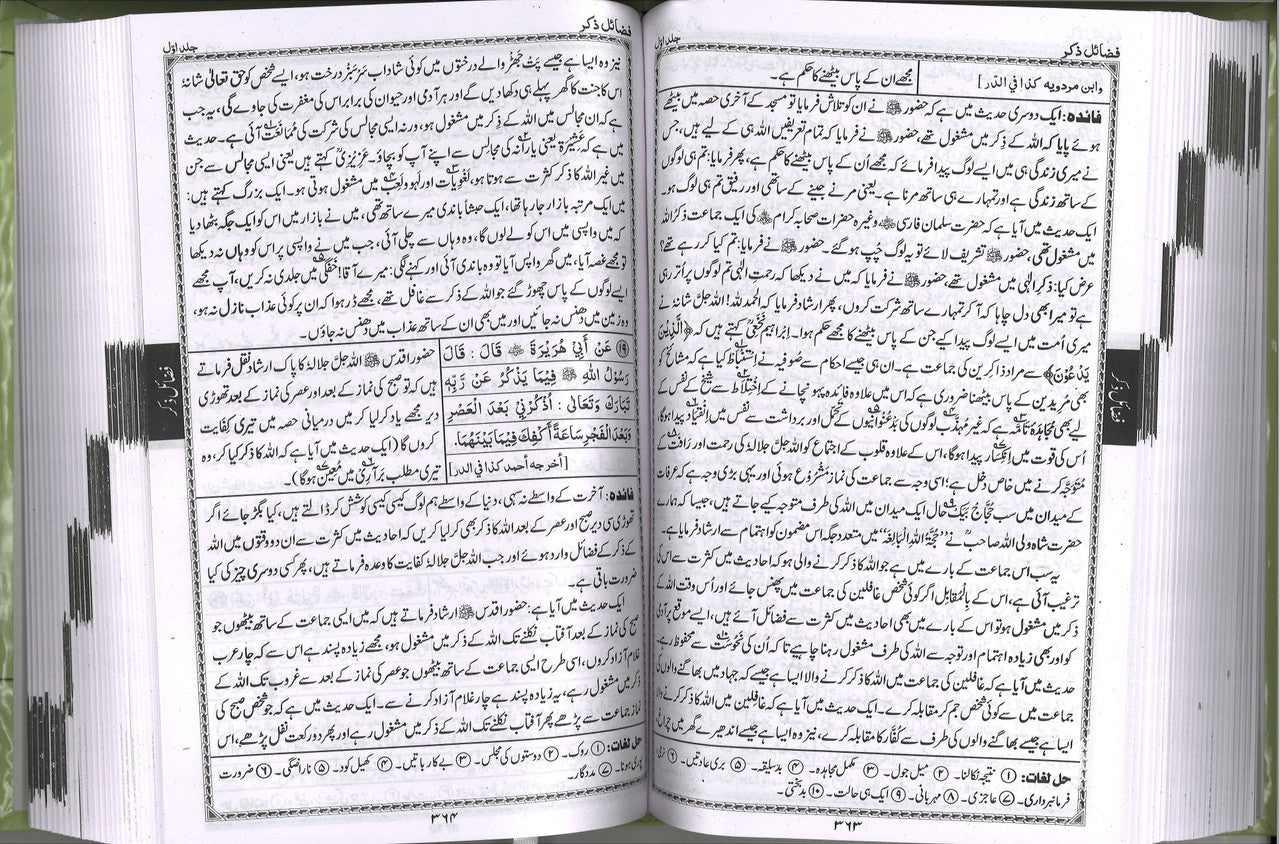 فضائل ذکر
جلد اوّل
وابن مردويه كذا في الدر]
مجھے ان کے پاس بیٹھنے کا حکم ہے۔
فائدہ: ایک دوسری حدیث میں ہے کہ حضور ﷺ نے ان کو تلاش فرمایا تو مسجد کے آخری حصہ میں بیٹھے
ہوئے پایا کہ اللہ کے ذکر میں مشغول تھے، حضور ﷺ نے فرمایا کہ تمام تعریفیں اللہ ہی کے لیے ہیں، جس
نے میری زندگی ہی میں ایسے لوگ پیدا فرمائے کہ مجھے اُن کے پاس بیٹھنے کا حکم ہے، پھر فرمایا: تم ہی لوگوں
کے ساتھ زندگی ہے اور تمہارے ہی ساتھ مرنا ہے۔ یعنی مرنے جینے کے ساتھی اور رفیق تم ہی لوگ ہو۔
ایک حدیث میں آیا ہے کہ حضرت سلمان فارسی ؓ وغیرہ حضرات صحابہ کرام ؓ کی ایک جماعت ذکرُ اللہ
میں مشغول تھی، حضور ﷺ تشریف لائے تو یہ لوگ چُپ ہو گئے۔ حضور ﷺ نے فرمایا: تم کیا کر رہے تھے؟
عرض کیا: ذکرِ الٰہی میں مشغول تھے، حضور ﷺ نے فرمایا کہ میں نے دیکھا کہ رحمتِ الٰہی تم لوگوں پر اُتر رہی
ہے تو میرا بھی دل چاہا کہ آکر تمہارے ساتھ شرکت کروں، پھر ارشاد فرمایا کہ الحمد للہ! اللہ جلَّ شانہٗ نے
میری اُمت میں ایسے لوگ پیدا کیے جن کے پاس بیٹھنے کا مجھے حکم ہوا۔ اِبراہیم نَخَعِیؒ کہتے ہیں کہ ﴿الَّذِيْنَ
يَدْعُوْنَ﴾ سے مراد ذاکرین کی جماعت ہے۔ ان ہی جیسے احکام سے صوفیہ نے اِستنباط کیا ہے کہ مشائخ کو
بھی مُریدین کے پاس بیٹھنا ضروری ہے کہ اس میں علاوہ فائدہ پہونچانے کے اِختلاط سے شیخ کے نفس کے
لیے بھی مُجاہدہ تامّہ ہے کہ غیر مُہذّب لوگوں کی بدعُنوانیوں کے تحمُّل اور برداشت سے نفس میں اِنقیاد پیدا ہوگا،
اُس کی قوت میں اِنکِسار پیدا ہوگا، اس کے علاوہ قلوب کے اِجتماع کو اللہ جلَّ جلالہٗ کی رحمت اور رَافت کے
مُتوجّہ کرنے میں خاص دخل ہے؛ اسی وجہ سے جماعت کی نماز مشروع ہوئی اور یہی بڑی وجہ ہے کہ عرفات
کے میدان میں سب حُجّاج بیک حال ایک میدان میں اللہ کی طرف متوجہ کیے جاتے ہیں، جیسا کہ ہمارے
حضرت شاہ ولی اللہ صاحبؒ نے ”حُجَّۃُ اللہِ الْبَالِغَہ“ میں متعدد جگہ اس مضمون کو اہتمام سے ارشاد فرمایا ہے۔
یہ سب اس جماعت کے بارے میں ہے جو اللہ کا ذکر کرنے والی ہو کہ احادیث میں کثرت سے اس کی
ترغیب آئی ہے، اس کے بالمُقابل اگر کوئی شخص غافلین کی جماعت میں پھنس جائے اور اُس وقت اللہ کے
ذکر میں مشغول ہو تو اس کے بارے میں بھی احادیث میں کثرت سے فضائل آئے ہیں، ایسے موقع پر آدمی
کو اور بھی زیادہ اہتمام اور توجہ سے اللہ کی طرف مشغول رہنا چاہیے تاکہ اُن کی نُحوست سے محفوظ رہے۔
حدیث میں آیا ہے کہ غافلین کی جماعت میں اللہ کا ذکر کرنے والا ایسا ہے جیسے کہ جہاد میں بھاگنے والوں کی
جماعت میں سے کوئی شخص جم کر مقابلہ کرے۔ ایک حدیث میں آیا ہے کہ غافلین میں اللہ کا ذکر کرنے والا
ایسا ہے جیسے بھاگنے والوں کی طرف سے کُفّار کا مقابلہ کرے، نیز وہ ایسا ہے جیسے اندھیرے گھر میں چراغ،
حل لغات: ① نتیجہ نکالنا۔ ② میل جول۔ ③ مکمل مجاہدہ۔ ④ بدسلیقہ۔ ⑤ بری عادتیں۔ ⑥
فرمانبرداری۔ ⑦ عاجزی۔ ⑧ مہربانی۔ ⑨ ایک ہی حالت۔ ⑩ بدبختی۔
۳۶۳
فضائل ذکر
فضائل ذکر
جلد اوّل
نیز وہ ایسا ہے جیسے پَت جھڑ والے درختوں میں کوئی شاداب سَرسَبز درخت ہو، ایسے شخص کو حق تعالیٰ شانہٗ
اس کا جنت کا گھر پہلے ہی دکھا دیں گے اور ہر آدمی اور حیوان کی برابر اس کی مغفرت کی جاوے گی، یہ جب
ہے کہ ان مجالس میں اللہ کے ذکر میں مشغول ہو، ورنہ ایسی مجالس کی شرکت کی مُمانعت آئی ہے۔ حدیث
میں ہے کہ عَشیرَۃ یعنی یارانہ کی مجالس سے اپنے آپ کو بچاؤ۔ عزیزیؒ کہتے ہیں یعنی ایسی مجالس سے جن
میں غیر اللہ کا ذکر کثرت سے ہوتا ہو، لغویّات اور لہو ولَعِب میں مشغولی ہوتی ہو۔ ایک بزرگ کہتے ہیں:
میں ایک مرتبہ بازار جا رہا تھا، ایک حبشا باندی میرے ساتھ تھی، میں نے بازار میں اس کو ایک جگہ بٹھا دیا
کہ میں واپسی میں اس کو لے لوں گا، وہ وہاں سے چلی آئی، جب میں نے واپسی پر اس کو وہاں نہ دیکھا
تو مجھے غصہ آیا، میں گھر واپس آیا تو وہ باندی آئی اور کہنے لگی: میرے آقا! خفگی میں جلدی نہ کریں، آپ مجھے
ایسے لوگوں کے پاس چھوڑ گئے جو اللہ کے ذکر سے غافل تھے، مجھے ڈر ہوا کہ ان پر کوئی عذاب نازل نہ ہو،
وہ زمین میں دھنس نہ جائیں اور میں بھی ان کے ساتھ عذاب میں دھنس نہ جاؤں۔
⑲ عَنْ أَبِيْ هُرَيْرَةَ ؓ قَالَ: قَالَ
رَسُوْلُ اللهِ ﷺ فِيْمَا يَذْكُرُ عَنْ رَبِّهِ
تَبَارَكَ وَتَعَالٰى: اُذْكُرْنِيْ بَعْدَ الْعَصْرِ
وَبَعْدَ الْفَجْرِ سَاعَةً أَكْفِكَ فِيْمَا بَيْنَهُمَا.
[أخرجه أحمد كذا في الدر]
حضورِ اقدس ﷺ اللہ جلَّ جلالہٗ کا پاک ارشاد نقل فرماتے
ہیں کہ تو صبح کی نماز کے بعد اور عصر کی نماز کے بعد تھوڑی
دیر مجھے یاد کر لیا کر میں درمیانی حصہ میں تیری کفایت
کروں گا (ایک حدیث میں آیا ہے کہ اللہ کا ذکر کیا کر، وہ
تیری مطلب بَرآری میں مُعین ہوگا)۔
فائدہ: آخرت کے واسطے نہ سہی، دنیا کے واسطے ہم لوگ کیسی کیسی کوشش کر ڈالتے ہیں، کیا بگڑ جائے اگر
تھوڑی سی دیر صبح اور عصر کے بعد اللہ کا ذکر بھی کر لیا کریں کہ احادیث میں کثرت سے ان دو وقتوں میں اللہ
کے ذکر کے فضائل وارد ہوئے اور جب اللہ جلَّ جلالہٗ کفایت کا وعدہ فرماتے ہیں، پھر کسی دوسری چیز کی کیا
ضرورت باقی ہے۔
ایک حدیث میں آیا ہے: حضورِ اقدس ﷺ ارشاد فرماتے ہیں کہ میں ایسی جماعت کے ساتھ بیٹھوں جو
صبح کی نماز کے بعد آفتاب نکلنے تک اللہ کے ذکر میں مشغول ہو، مجھے زیادہ پسند ہے اس سے کہ چار عرب
غلام آزاد کروں، اسی طرح ایسی جماعت کے ساتھ بیٹھوں جو عصر کی نماز کے بعد سے غروب تک اللہ کے
ذکر میں مشغول رہے، یہ زیادہ پسند ہے چار غلام آزاد کرنے سے۔ ایک حدیث میں ہے کہ جو شخص صبح کی
نماز جماعت سے پڑھے پھر آفتاب نکلنے تک اللہ کے ذکر میں مشغول رہے اور پھر دو رکعت نفل پڑھے، اس
حل لغات: ① روک۔ ② دوستوں کی مجلس۔ ③ بے کار باتیں۔ ④ کھیل کود۔ ⑤ ناراضگی۔ ⑥ ضرورت
پوری ہونا۔ ⑦ مددگار۔
۳۶۴
فضائل ذکر